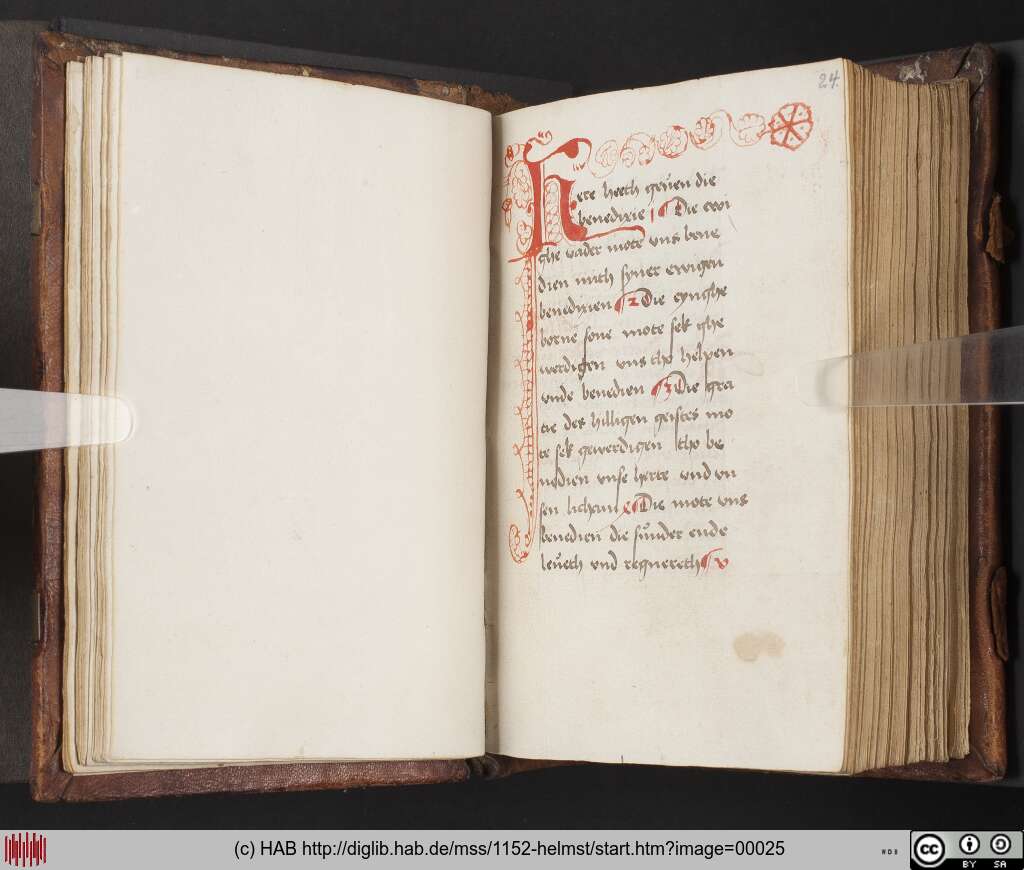 24.
Here heth geuen die
benedixie 1 Die ewi
ghe vader mote vns bene
dien mith syner ewigen
benedixien 2 Die eynghe
borne sone mote sek ghe
werdigen vns tho helpen
vnde benedien 3 Die gra
cie des hilligen geistes mo
te sek gewerdigen tho be
nedien vnse herte vnd vn
sen licham Die mote vns
benedien die sunder ende
leueth vnd regnereth v
(c) HAB http://diglib.hab.de/mss/1152-helmst/start.htm?image=00025
WDB
cc
BY SA